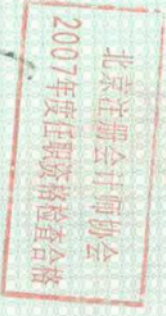 北京注册会计师协会
2007年度任职资格检查合格